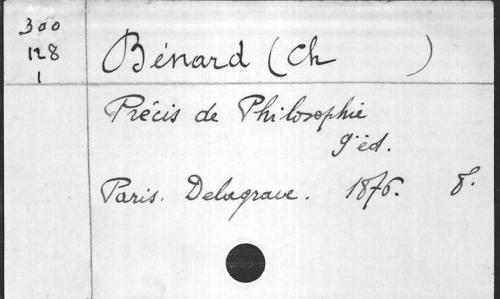 300
128
1
Bénard (Ch )
Précis de Philosophie
9ᵉ éd.
Paris. Delagrave. 1876. 8°.